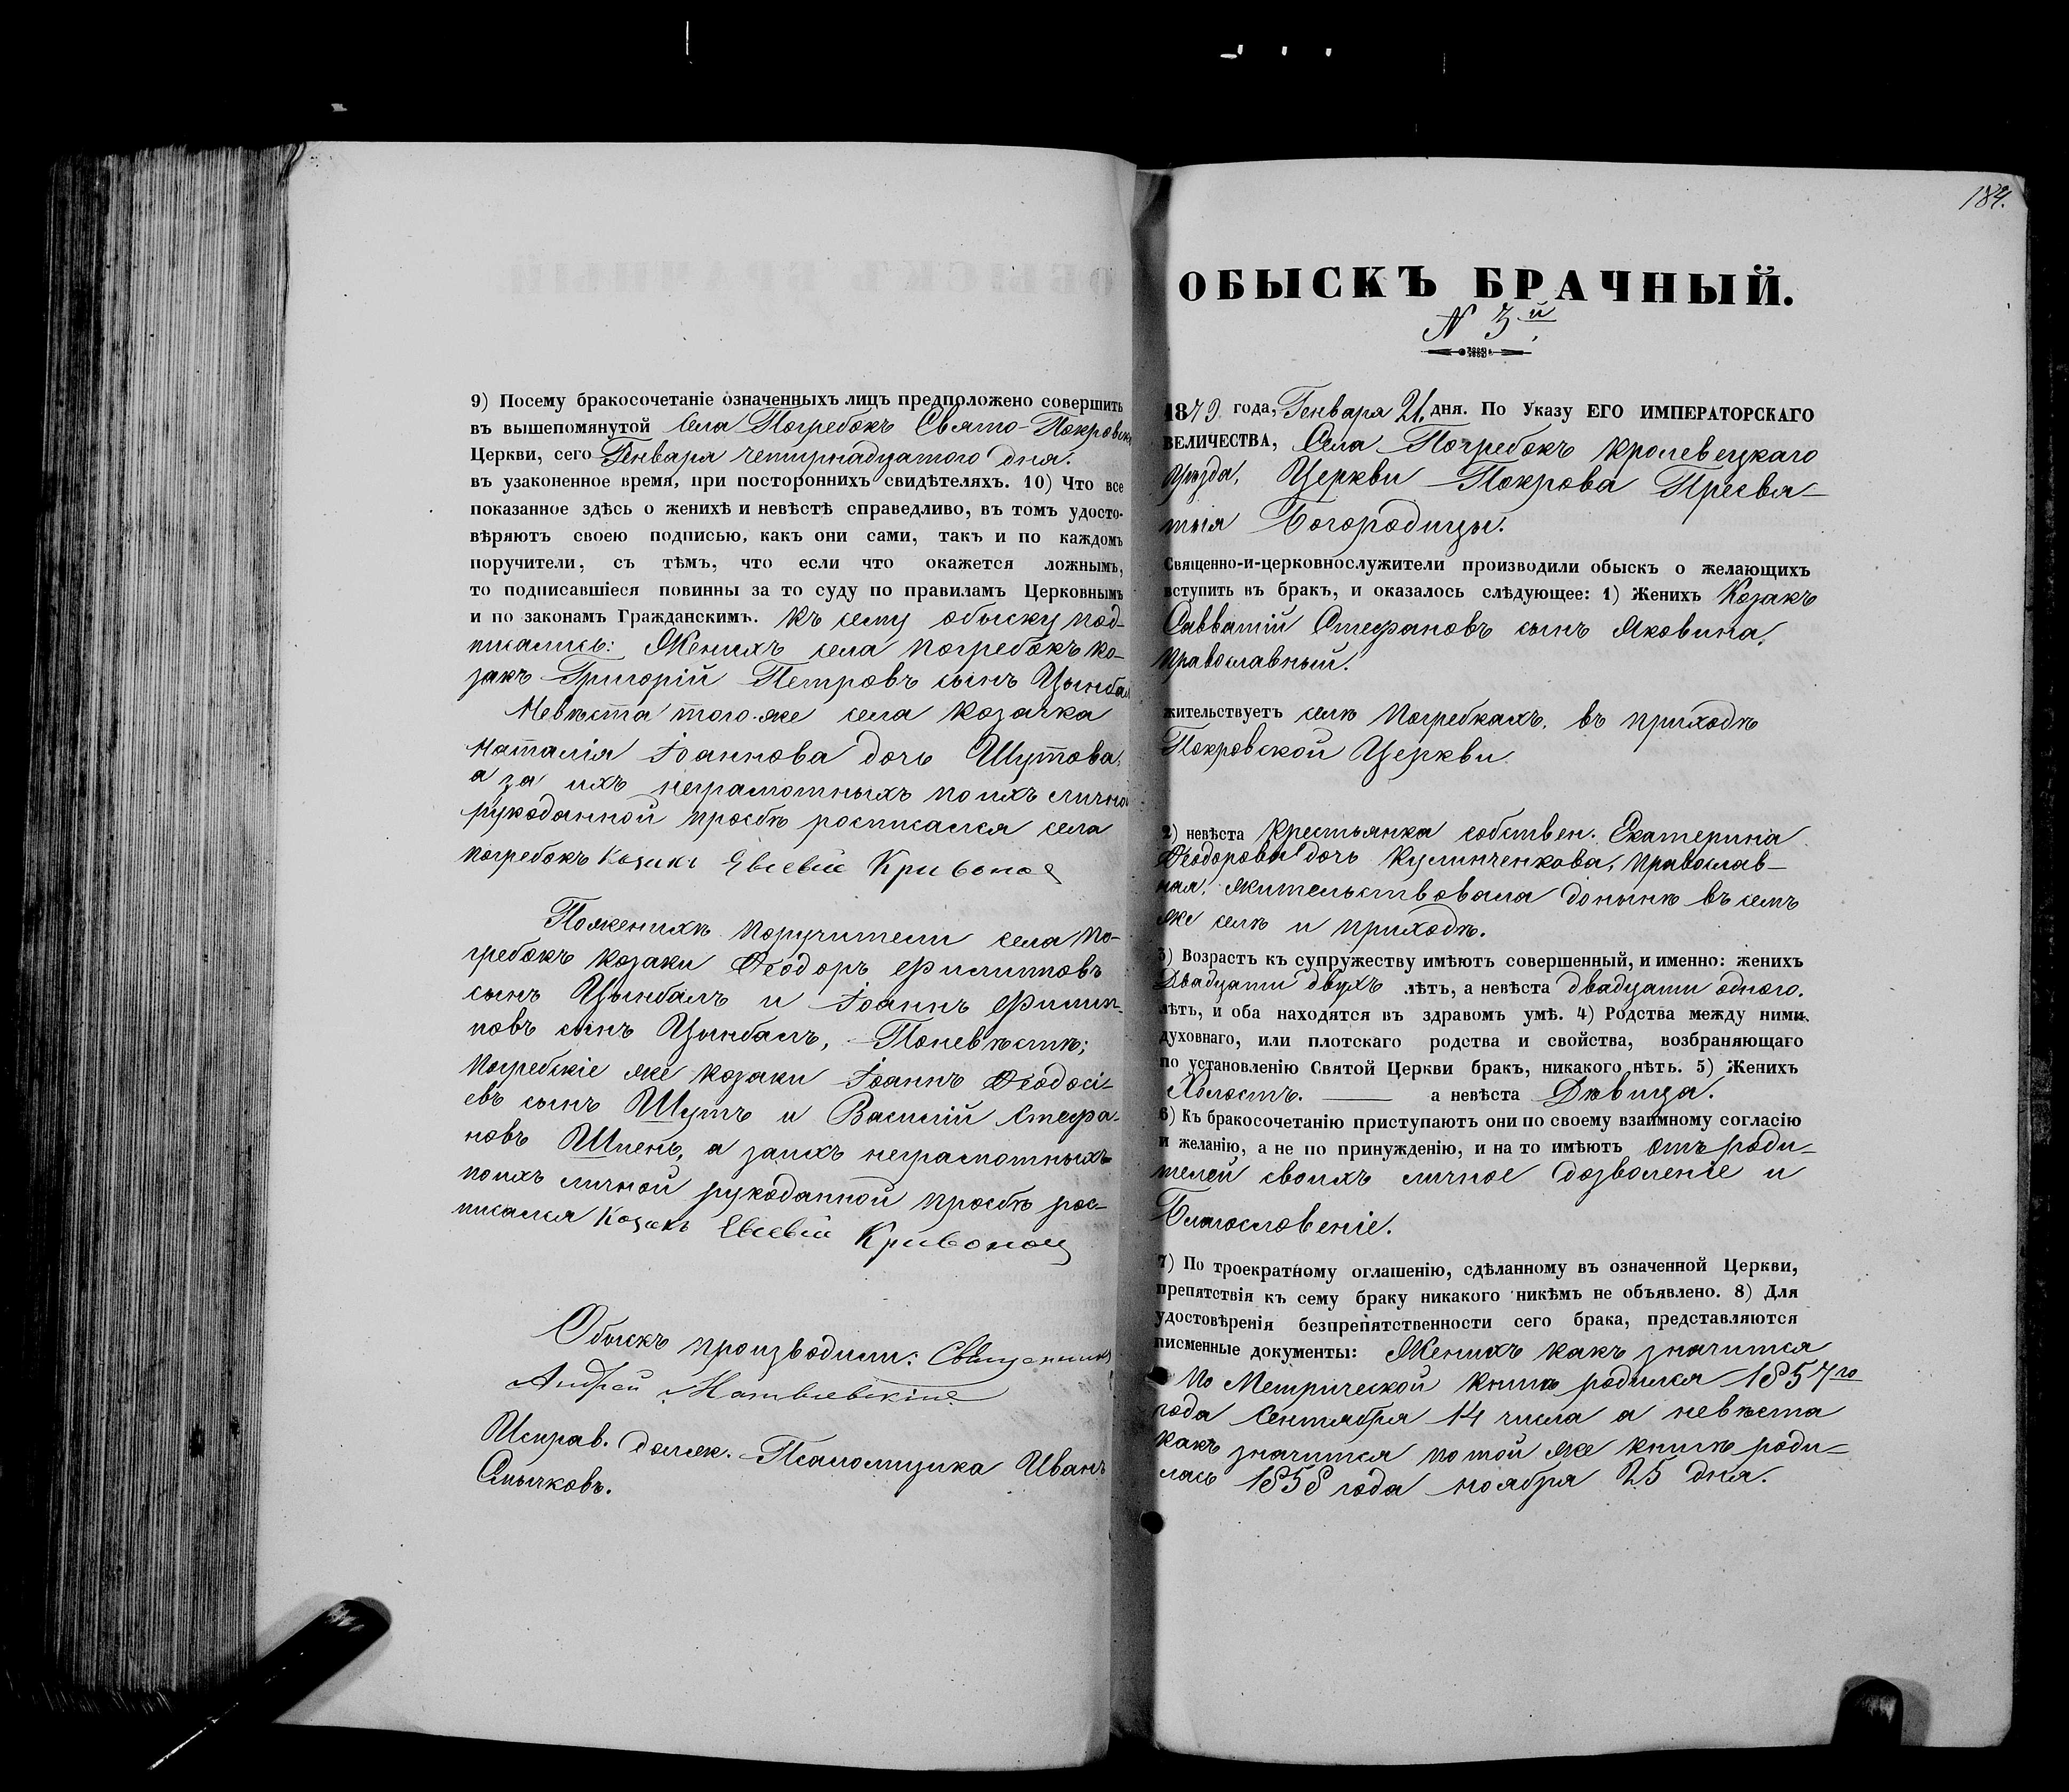 9) Посему бракосочетаніе означенныхъ лицъ предположено совершить
въ вышепомянутой Села Погребокъ Свято-Покровск
Церкви, сего Генваря четырнадцатого дня.
въ узаконенное время, при постороннихъ свидѣтеляхъ. 10) Что все
показанное здѣсь о женихѣ и невѣстѣ справедливо, въ томъ удосто-
вѣряютъ своею подписью, какъ они сами, такъ и по каждомъ
поручители, съ тѣмъ, что если что окажется ложнымъ,
то подписавшіеся повинны за то суду по правиламъ Церковнымъ
и по законамъ Гражданскимъ. Къ сему обыску под-
писались: Женихъ села Погребокъ ко-
закъ Григорій Петровъ сынъ Цынбал
Невѣста того-же села козачка
Наталія Іоаннова дочь Шутова,
а за ихъ неграмотныхъ по ихъ лично
рукоданной просьбѣ росписался села
Погребокъ Козакъ Евсевій Кривонос
По женихѣ поручители села По-
гребокъ козаки Ѳеодоръ Филиповъ
сынъ Цынбалъ и Іоаннъ Филип-
повъ сынъ Цынбалъ, По невѣстѣ;
Погребскіе же козаки Іоаннъ Ѳеодосі-
евъ сынъ Шутъ и Василій Стефа-
новъ Шпень, а за ихъ неграмотныхъ
по ихъ личной рукоданной просьбѣ рос-
писался Козакъ Евсевій Кривонос
Обыскъ производили: Священникъ
Андрей
Исправ. долж. Псаломщика Иванъ
Смычковъ.
184.
ОБЫСКЪ БРАЧНЫЙ.
N 3й
1879 года, Генваря 21. дня. По Указу ЕГО ИМПЕРАТОРСКАГО
ВЕЛИЧЕСТВА, Села Погребокъ Кролевецкаго
Уѣзда, Церкви Покрова Пресвя-
тыя Богородицы.
Священно-и-церковнослужители производили обыскъ о желающихъ
вступить въ бракъ, и оказалось слѣдующее: 1) Женихъ Козакъ
Савватій Стефановъ сынъ Яковина,
православный.
жительствуетъ селѣ Погребкахъ, въ приходѣ
Покровской Церкви.
2) невѣста Крестьянка собствен. Екатерина
Ѳеодорова дочь Кулинченкова, Православ-
ная, жительствовала донынѣ въ семъ
же селѣ и приходѣ.
3) Возрастъ къ супружеству имѣютъ совершенный, и именно: женихъ
Двадцати двухъ лѣтъ, а невѣста двадцати одного.
лѣтъ, и оба находятся въ здравомъ умѣ. 4) Родства между ними
духовнаго, или плотскаго родства и свойства, возбраняющаго
по установленію Святой Церкви бракъ, никакого нѣтъ. 5) Женихъ
Холостъ. — а невѣста Дѣвица.
6) Къ бракосочетанію приступаютъ они по своему взаимному согласію
и желанію, а не по принужденію, и на то имѣютъ отъ роди-
телей своихъ личное дозволеніе и
Благословеніе.
7) По троекратному оглашенію, сдѣланному въ означенной Церкви,
препятствія къ сему браку никакого никѣмъ не объявлено. 8) Для
удостовѣренія безпрепятственности сего брака, представляются
писменные документы: Женихъ какъ значится
по Метрической книгѣ родился 1857го
года Сентября 14 числа а невѣста
какъ значится по той же книгѣ роди-
лась 1858 года ноября 25 дня.